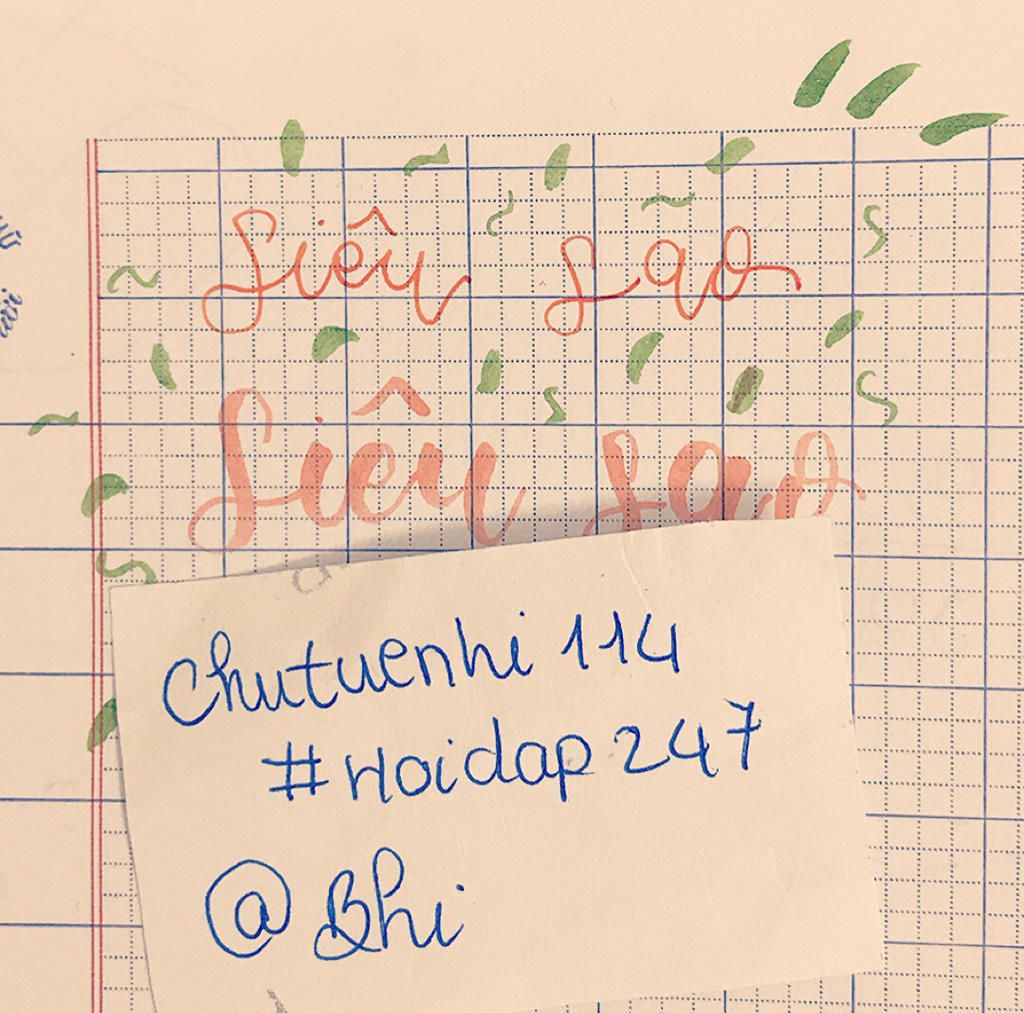 Siêu sao
Siêu sao
Chutuenhi 114
#Hoidap247
@Bhi